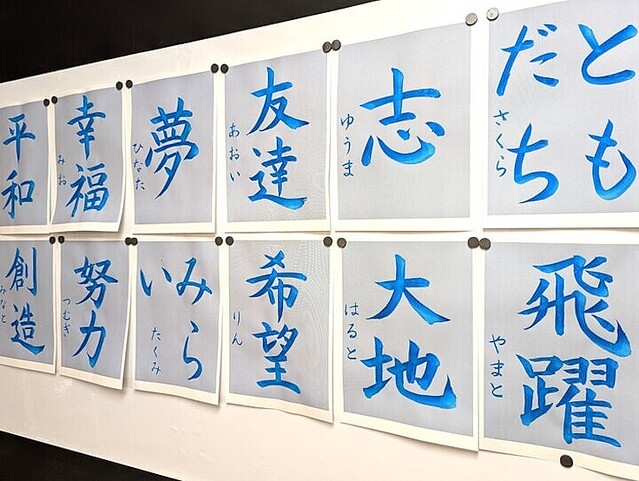 平和
幸福
みお
夢
ひなた
友達
あおい
志
ゆうま
ともだち
さくら
創造
みなと
努力
つむぎ
みらい
たくみ
希望
りん
大地
はると
飛躍
やまと